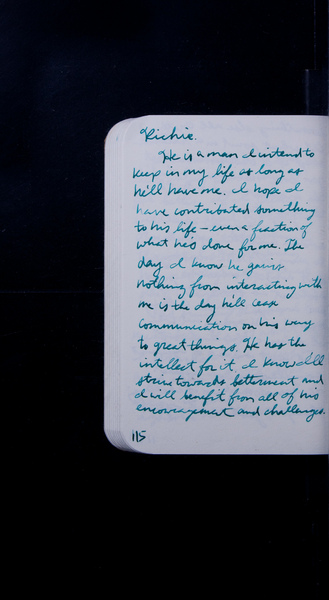 Richie.
He is a man I intend to
keep in my life as long as
he'll have me. I hope I
have contributed something
to his life — even a fraction of
what he's done for me. The
day I know he gains
nothing from interacting with
me is the day he'll cease
communication on his way
to great things. He has the
intellect for it. I know I'll
strive towards betterment and
I will benefit from all of his
encouragement and challenges.
115